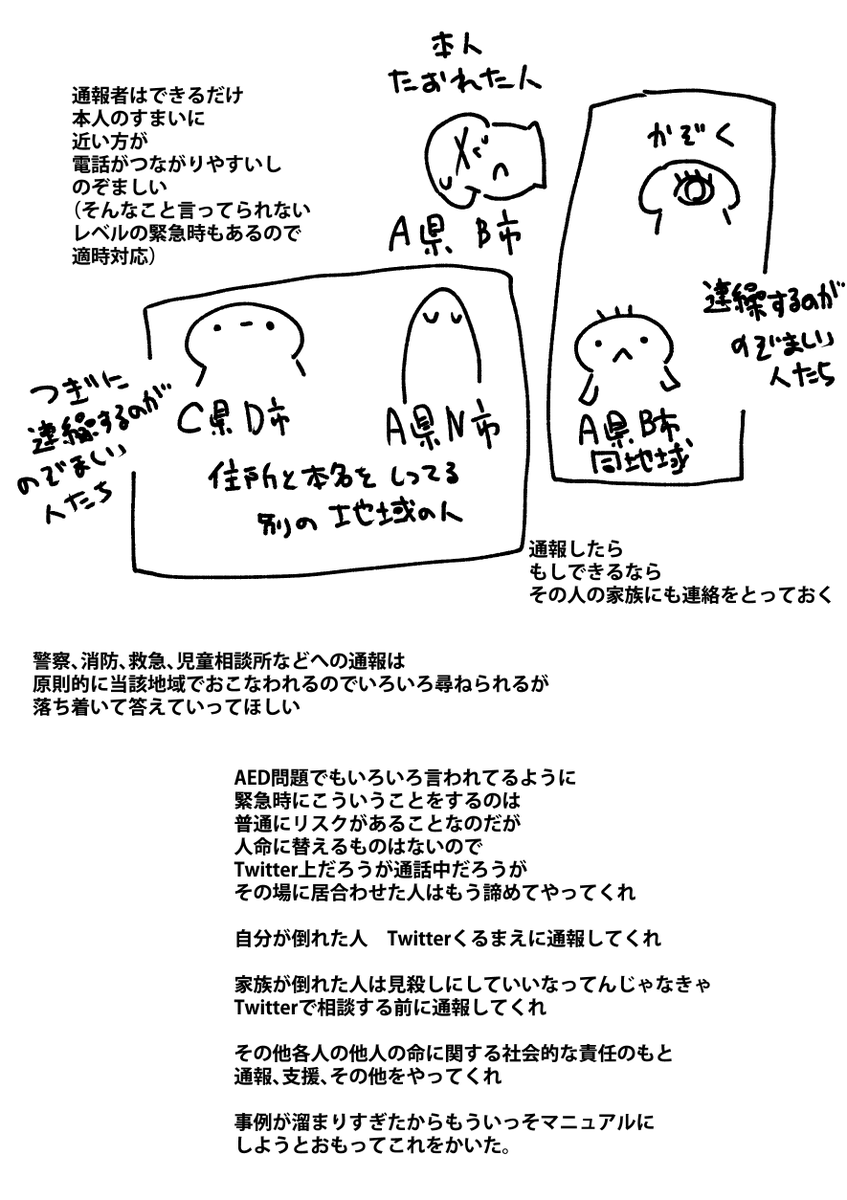 本人
たおれた人
通報者はできるだけ
本人のすまいに
近い方が
電話がつながりやすいし
のぞましい
（そんなこと言ってられない
レベルの緊急時もあるので
適時対応）
A県 B市
かぞく
連絡するのが
のぞましい
人たち
A県B市
同地域
つぎに
連絡するのが
のぞましい
人たち
C県D市
A県N市
住所と本名をしってる
別の地域の人
通報したら
もしできるなら
その人の家族にも連絡をとっておく
警察、消防、救急、児童相談所などへの通報は
原則的に当該地域でおこなわれるのでいろいろ尋ねられるが
落ち着いて答えていってほしい
AED問題でもいろいろ言われてるように
緊急時にこういうことをするのは
普通にリスクがあることなのだが
人命に替えるものはないので
Twitter上だろうが通話中だろうが
その場に居合わせた人はもう諦めてやってくれ
自分が倒れた人　Twitterくるまえに通報してくれ
家族が倒れた人は見殺しにしていいなってんじゃなきゃ
Twitterで相談する前に通報してくれ
その他各人の他人の命に関する社会的な責任のもと
通報、支援、その他をやってくれ
事例が溜まりすぎたからもういっそマニュアルに
しようとおもってこれをかいた。